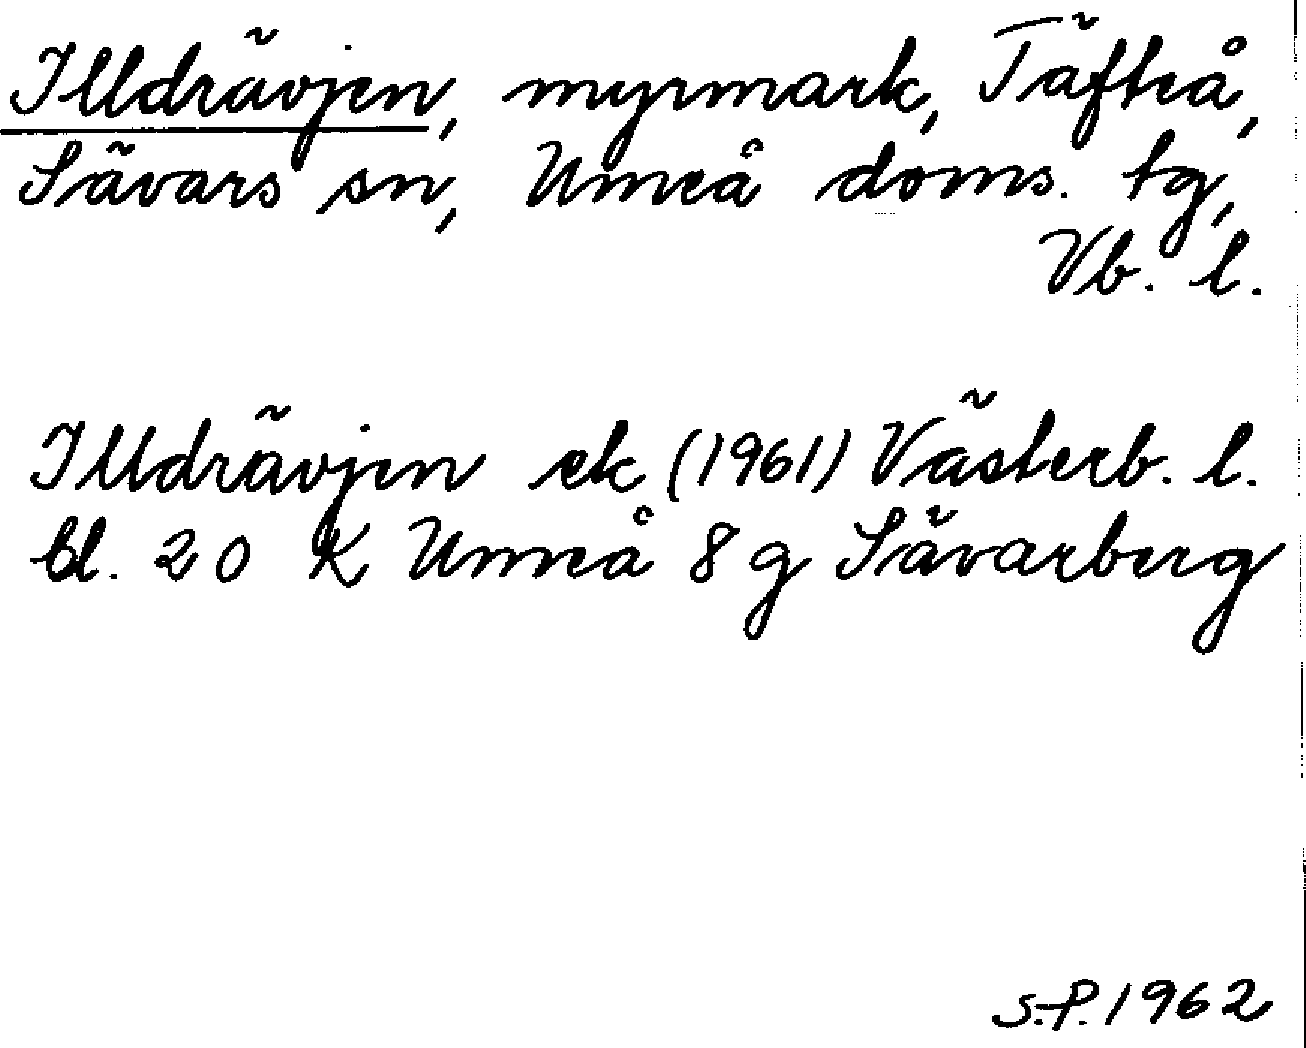 Illdrävjen, myrmark, Täfteå,
Sävars sn, Umeå doms. tg,
Vb. l.
Illdrävjen ek (1961) Västerb. l.
bl. 20 K Umeå 8 g Sävarberg
S.P. 1962